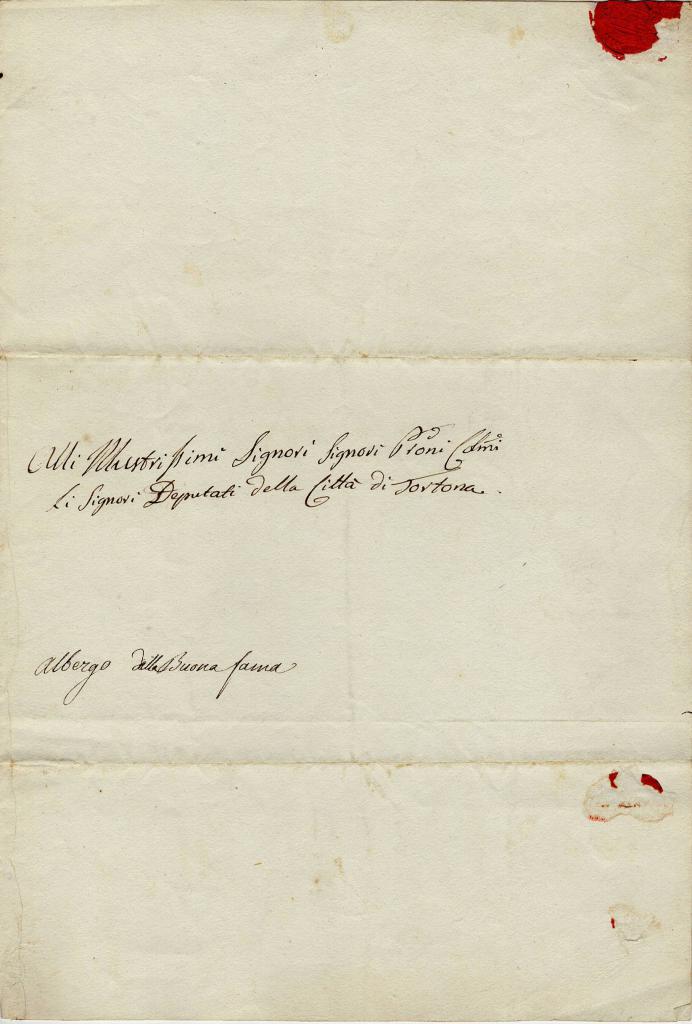 Alli Illustrissimi Signori Signori Proni Colmi
Li Signori Deputati della Città di Tortona.
Albergo della Buona fama